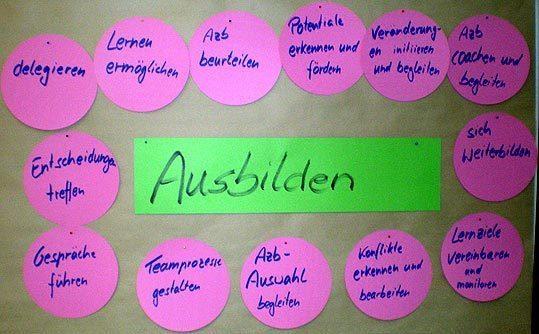 delegieren
Lernen
ermöglichen
Azb
beurteilen
Potentiale
erkennen und
fördern
Veränderung-
en initiieren
und begleiten
Azb
coachen und
begleiten
Entscheidungen
treffen
Ausbilden
sich
Weiterbilden
Gespräche
führen
Teamprozesse
gestalten
Azb-
Auswahl
begleiten
Konflikte
erkennen und
bearbeiten
Lernziele
vereinbaren
und
monitoren